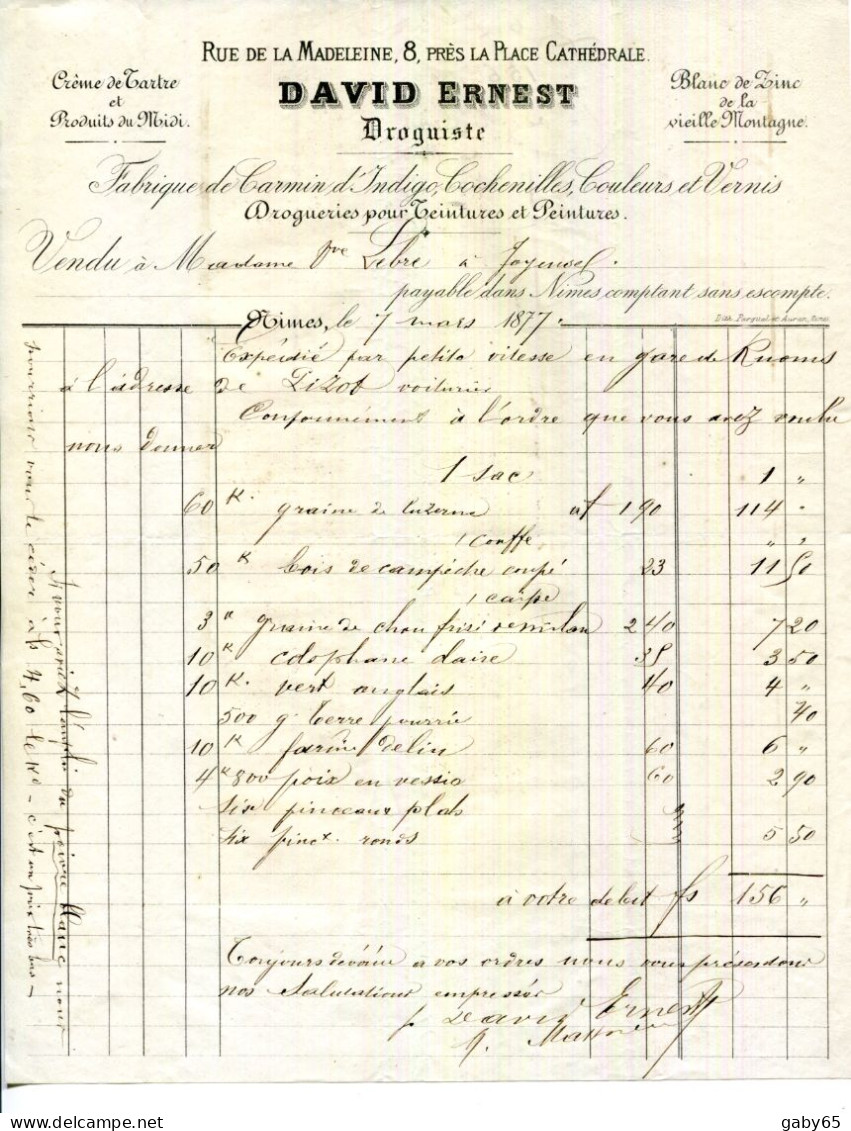 RUE DE LA MADELEINE, 8, PRÈS LA PLACE CATHÉDRALE.
Crême de Tartre
et
Produits du Midi.
DAVID ERNEST
Droguiste
Blanc de Zinc
de la
vieille Montagne.
Fabrique de Carmin d'Indigo, Cochenilles, Couleurs et Vernis
Drogueries pour Teintures et Peintures.
Vendu à Madame Vve Lebre à
payable dans Nimes, comptant sans escompte.
Nimes, le 7 mars 1877.
Expédié par petite vitesse en gare de Ruoms
à l'adresse de Pizot voiturier
Conformément à l'ordre que vous avez voulu
nous donner
1 sac 1 "
60 K. graine de luzerne af 1 90 114 "
1 couffe " "
50 K bois de campêche coupé 23 11 50
1 caisse
3 " graine de chou frisé de milan 2 40 7 20
10 K colophane claire 35 3 50
10 K. vert anglais 40 4 "
500 g terre pourrie 40
10 K farine de lin 60 6 "
4 K 800 poix en vessie 60 2 90
Six pinceaux plats
Six pincx. ronds 5 50
à votre debit fs 156 "
Toujours dévoués à vos ordres nous vous présentons
nos Salutations empressées
p. David Ernest
Si vous aviez l'emploi du poivre blanc nous
pourrions vous le céder à fs 4,60 le Ko - c'est un prix très bas -
gaby65